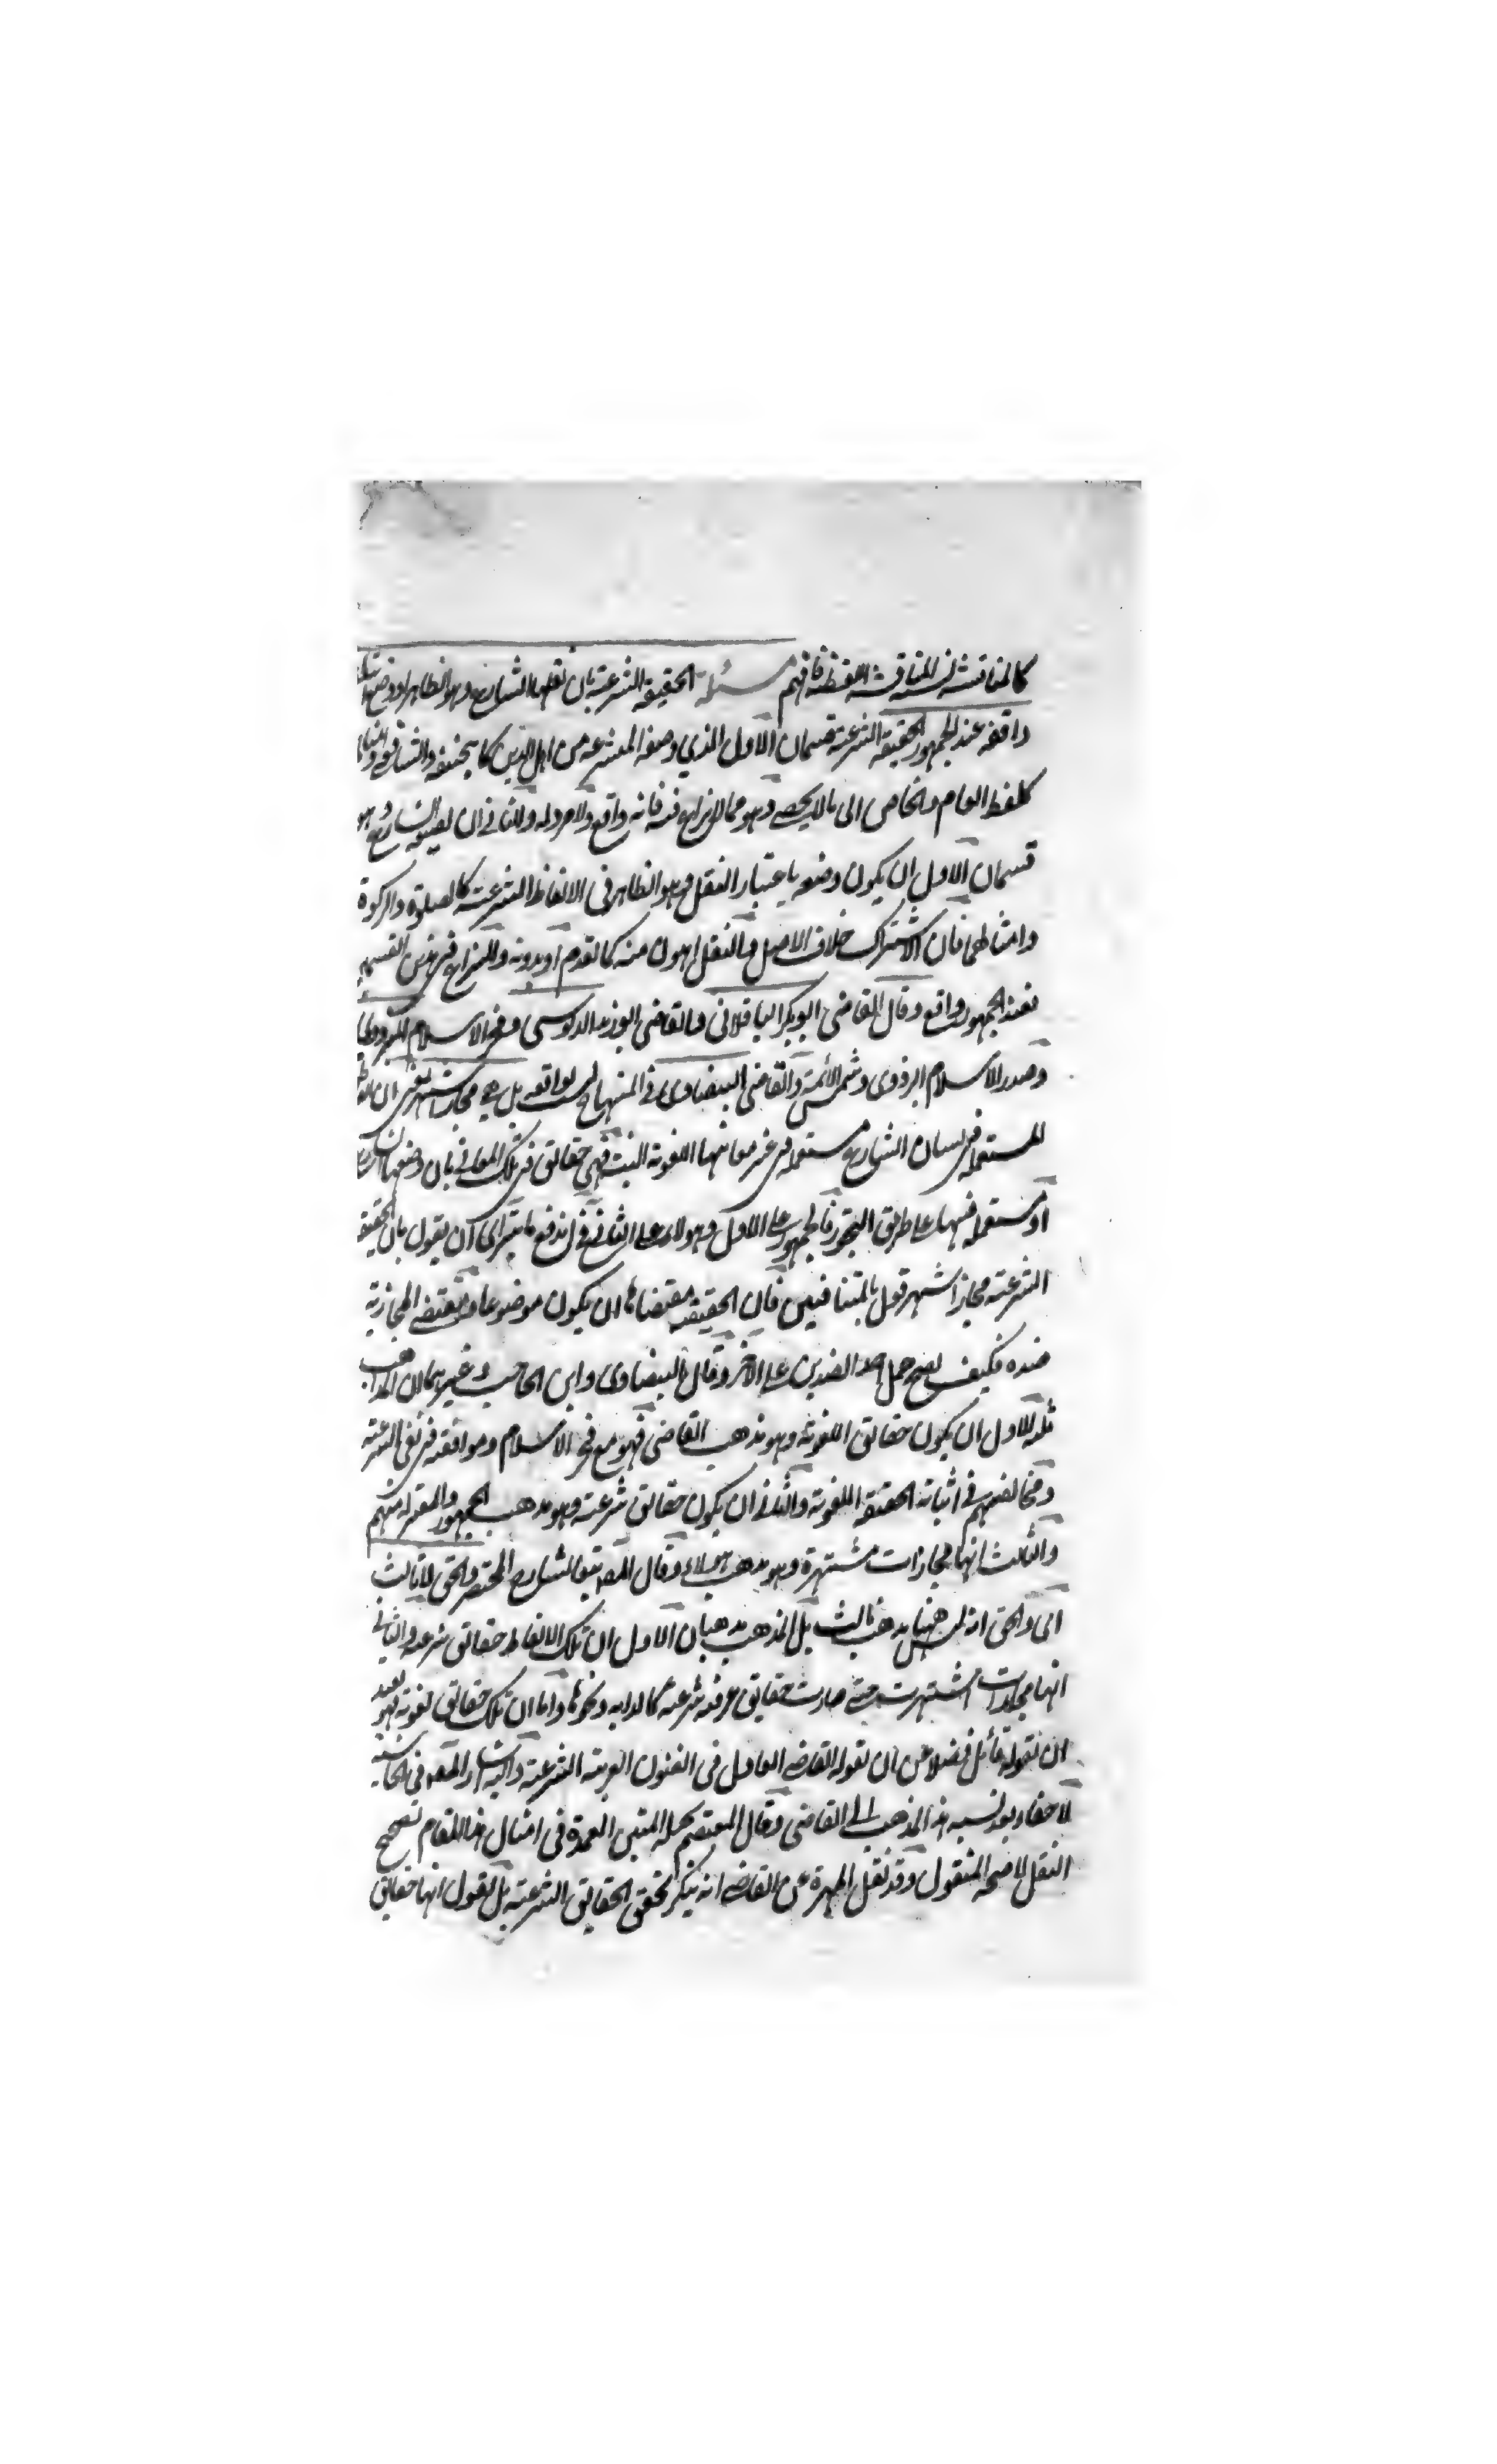 كالمناقشة في المناقشة اللفظية فافهم مسئلة الحقيقة الشرعية بان نقلها الشارع وهو الظاهر او وضعها
واقعة عند الجمهور الحقيقة الشرعية قسمان الاول الذي وضعه المتشرعة من اهل الدين كابيحنيفة والشافعي
كلفظ العام والخاص الى ما لا يحصى وهو مما لا نزاع فيه فانه واقع ولا مرد له والثاني ان يضعه الشارع وهو
قسمان الاول ان يكون وضعه باعتبار النقل وهو الظاهر في الالفاظ الشرعية كالصلوة والزكوة
وامثالهما فان الاشتراك خلاف الاصل والنقل اهون منه كما تقدم او بدونه والنزاع في هذين القسمين
فعند الجمهور واقع وقال القاضي ابو بكر الباقلاني والقاضي ابو زيد الدبوسي وفخر الاسلام البزدوي
وصدر الاسلام البزدوي وشمس الائمة والقاضي البيضاوي في المنهاج ليست بواقعة بل هي مجاز اشتهر يعني ان
المستعملة في لسان الشارع مستعملة في غير معانيها اللغوية البتة فهي حقائق في تلك المعاني بان وضعها الشارع
او مستعملة فيها على طريق التجوز فالجمهور على الاول وهؤلاء على الثاني فاندفع ما يتراءى ان يقول بان الحقيقة
الشرعية مجاز اشتهر قول بالمتنافيين فان الحقيقة مقتضاها ان يكون موضوعا ومقتضى المجازية
ضده فكيف يصح حمل احد الضدين على الاخر وقال البيضاوي وابن الحاجب وغيرهما ان المذاهب
ثلثة الاول ان يكون حقائق اللغوية وهو مذهب القاضي فهو مع فخر الاسلام وموافقه في نفي الشرعية
ومخالفهم في اثباته الحقيقة اللغوية والثاني ان يكون حقائق شرعية وهو مذهب الجمهور والمعتزلة منهم
والثالث انها مجازات مشتهرة وهو مذهب هؤلاء وقال المصـ تبعا لشارح المختصر والحق لا ثالث
اى والحق انه ليس ههنا مذهب ثالث بل المذهب مذهبان الاول ان تلك الالفاظ حقائق شرعية والثاني
انها مجازات اشتهرت حتى صارت حقايق عرفية شرعية كالدابة ونحوها واما ان تلك حقائق لغوية فهو بعيد
ان يقوله قائل فضلا عن ان يقوله القاضي العادل في الفنون العربية الشرعية واليه اشار المصـ في الحاشية
لا خفاء بعد نسبة هذا المذهب الى القاضي وقال المعتصم بحبله المتين العمدة في امثال هذا المقام تصحيح
النقل لا صحة المنقول وقد نقل المهرة عن القاضي انه ينكر تحقق الحقايق الشرعية بل يقول انها حقايق